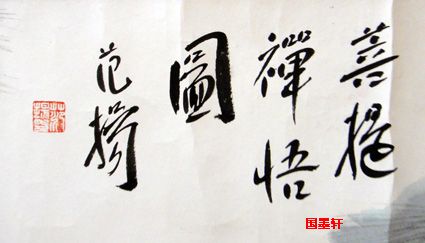 菩提
禪悟
圖
范揚
国墨轩